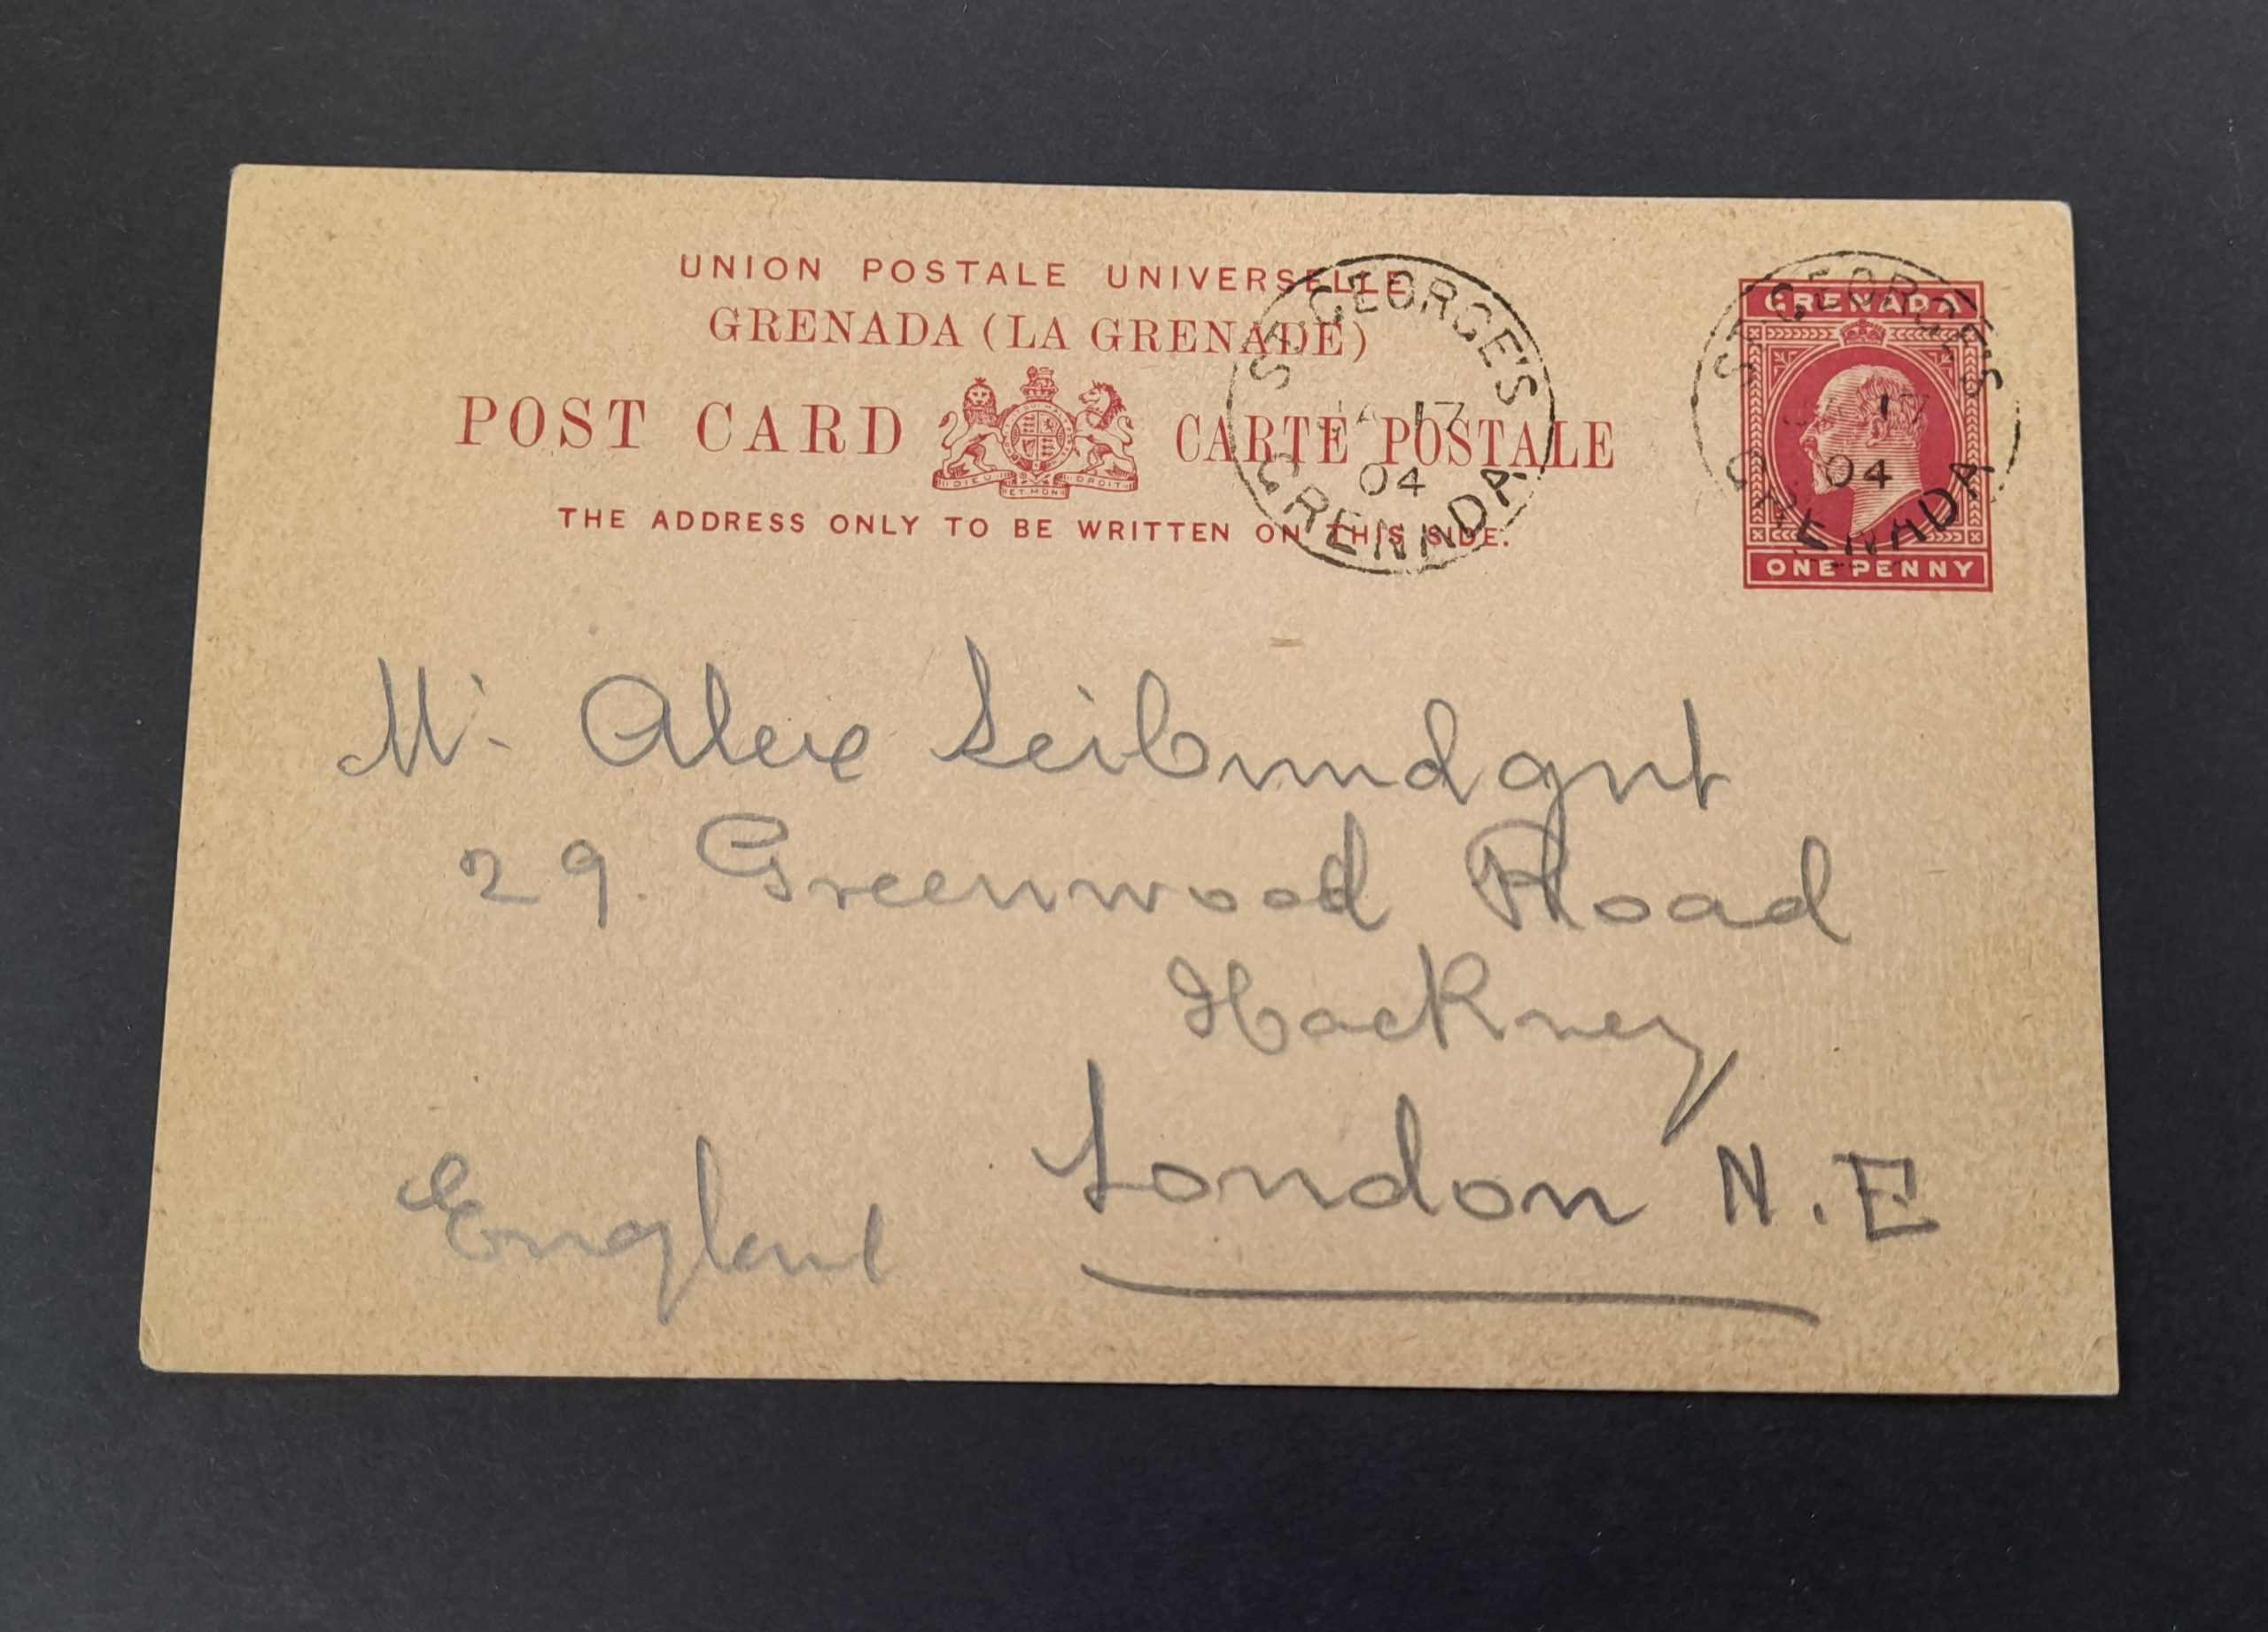 UNION POSTALE UNIVERSELLE
GRENADA (LA GRENADE)
POST CARD CARTE POSTALE
DIEU ET MON DROIT
THE ADDRESS ONLY TO BE WRITTEN ON THIS SIDE.
ST. GEORGE'S
JA 17
04
GRENADA
GRENADA
ONE PENNY
ST. GEORGE'S
17
04
GRENADA
Mr. Alex
29. Greenwood Road
Hackney
London N.E
England